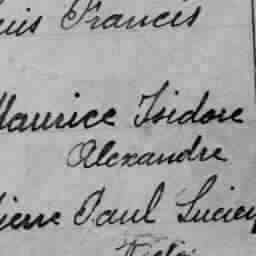 Francis
Maurice Isidore
Alexandre
Paul Lucien